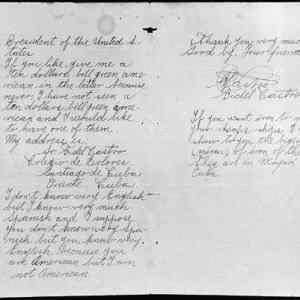 President of the United S-
tates.
If you like, give me a
ten dollars bill green ame-
rican, in the letter, because
never, I have not seen a
ten dollars bill green ame-
rican and I would like
to have one of them.
My address is:
Sr. Fidel Castro
Colegio de Dolores
Santiago de Cuba
Oriente. Cuba.
I don't know very English
but I know very much
Spanish and I suppose
you don't know very Spa-
nish but you know very
English because you
are American but I am
not American.
Thank you very much
Good by. Your friend,
Fidel Castro
If you want iron to
your ships I will
show to you the
of iron of the
They are in
Cuba